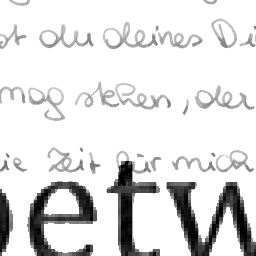 st du deines Di
mag stehen, der
ie Zeit für mich
etw